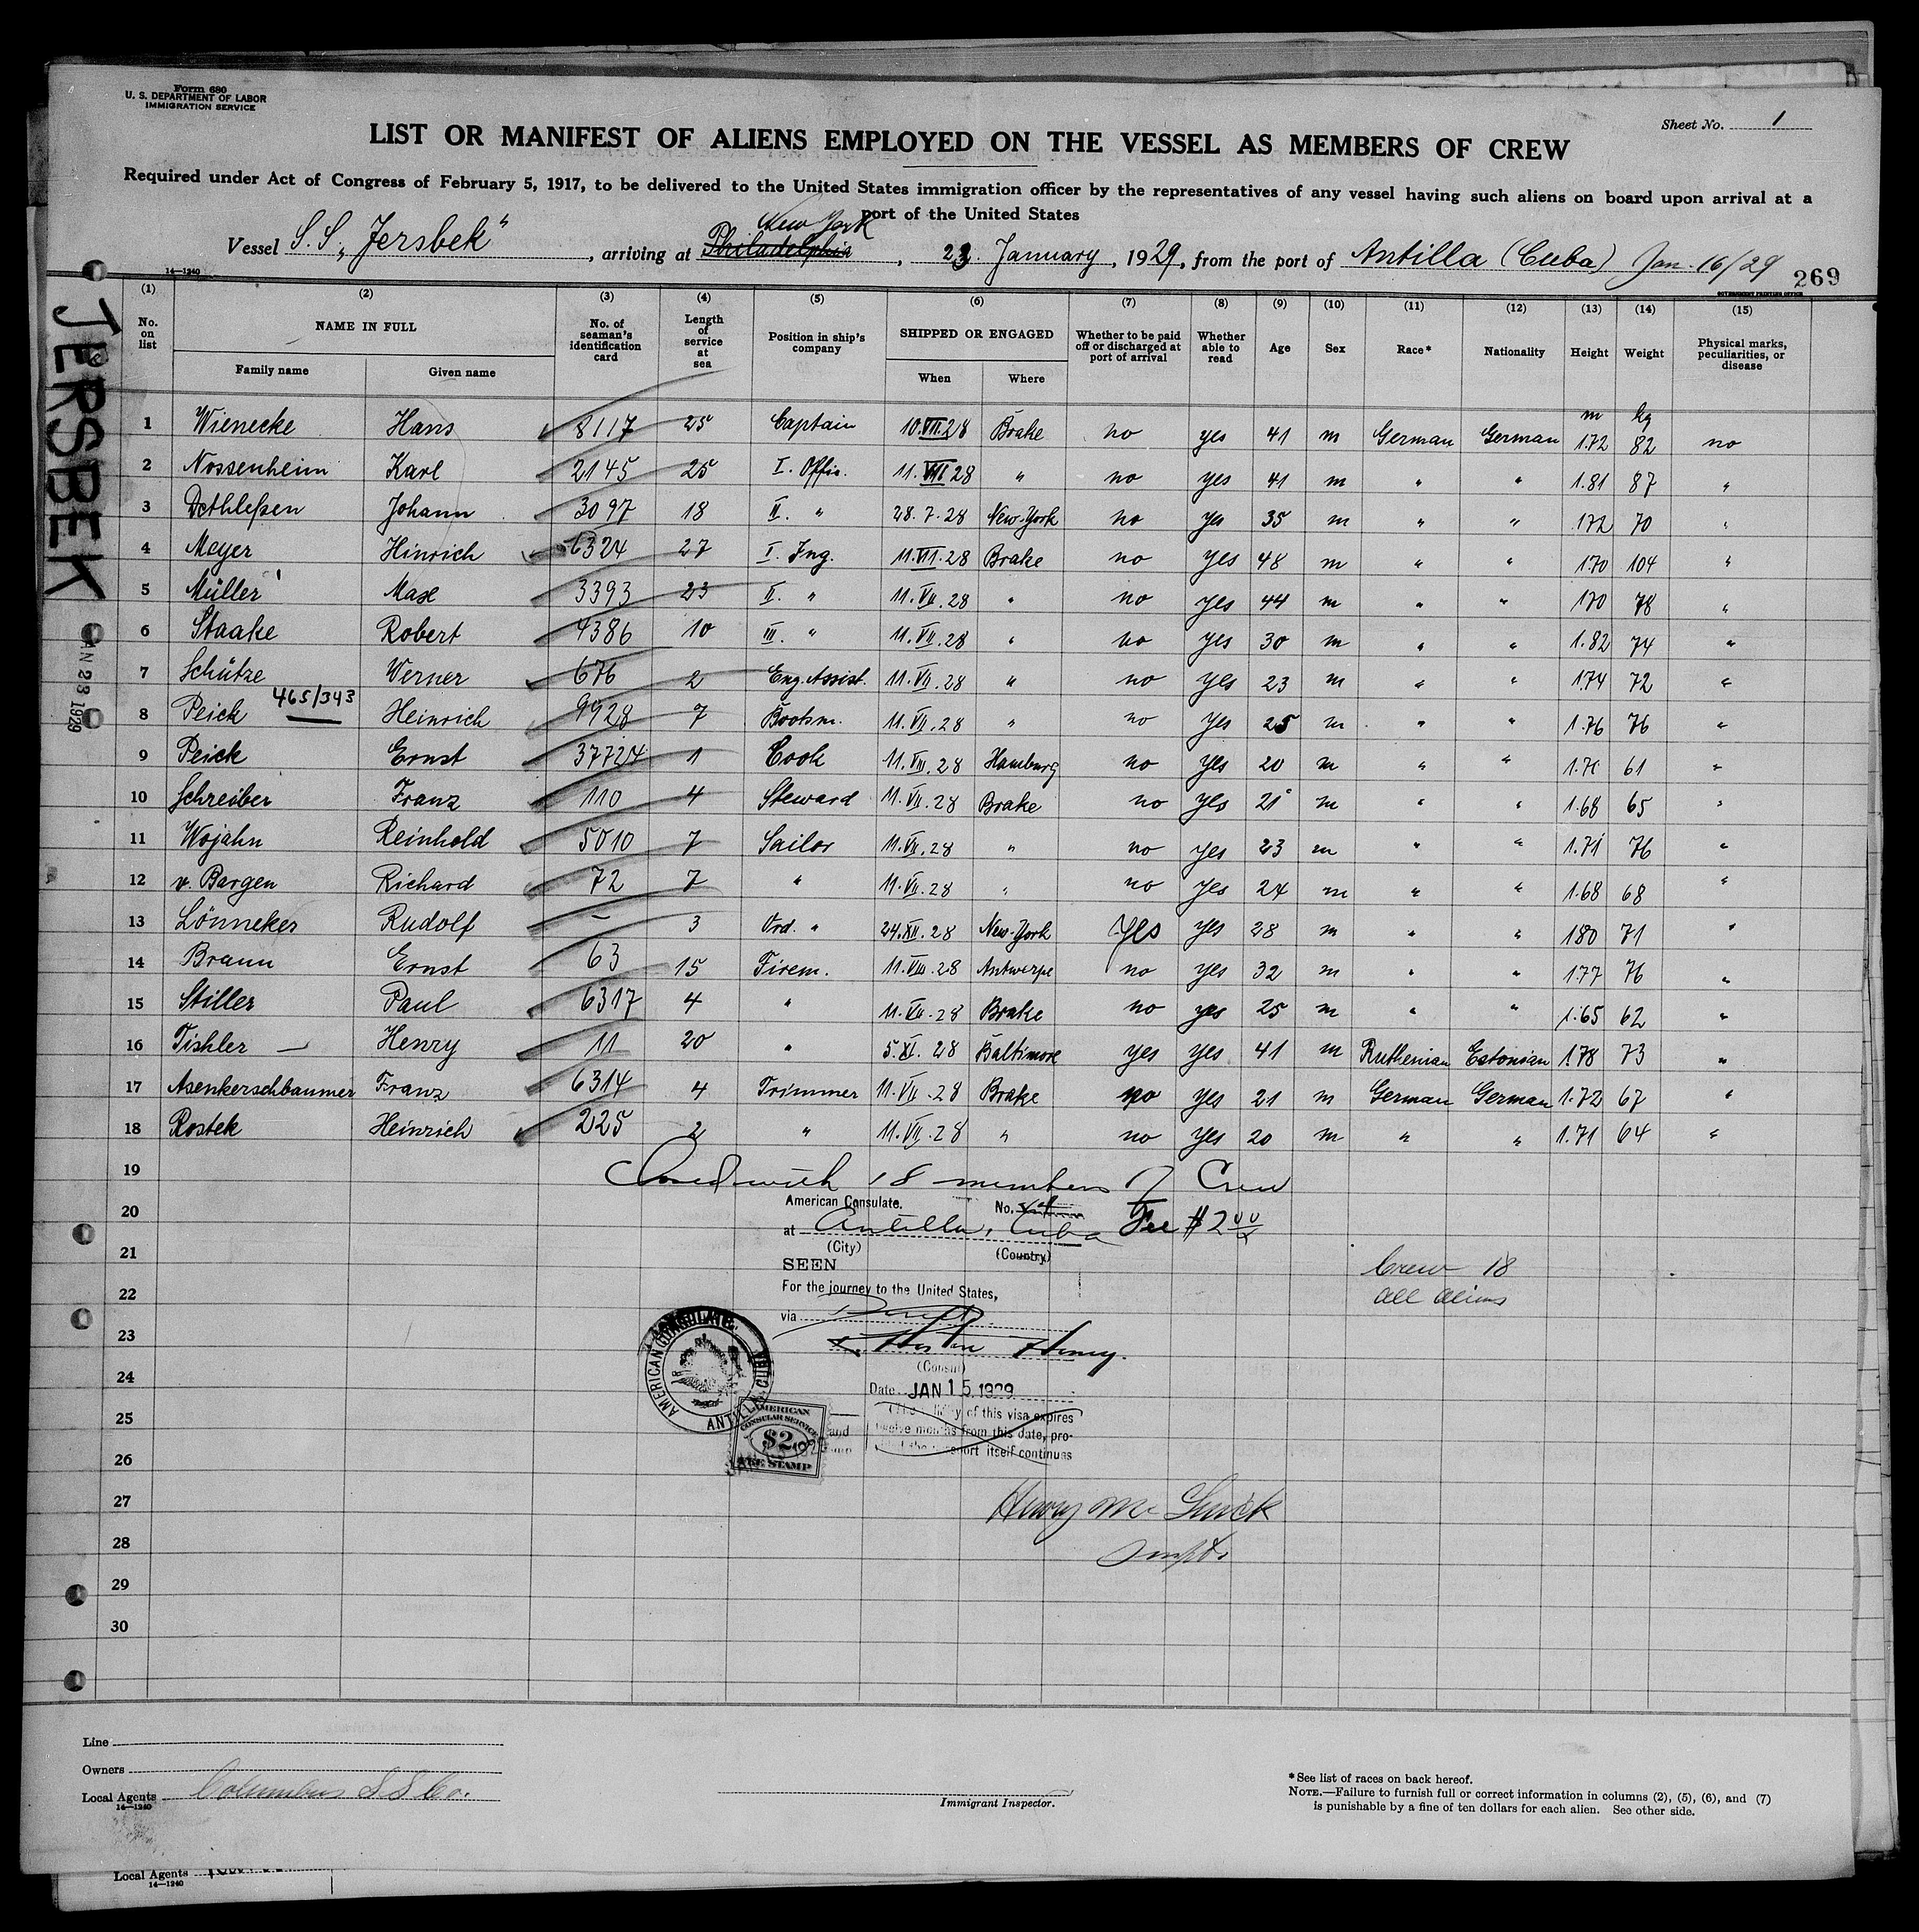 Form 680
U. S. DEPARTMENT OF LABOR
IMMIGRATION SERVICE
Sheet No. 1
LIST OR MANIFEST OF ALIENS EMPLOYED ON THE VESSEL AS MEMBERS OF CREW
Required under Act of Congress of February 5, 1917, to be delivered to the United States immigration officer by the representatives of any vessel having such aliens on board upon arrival at a
port of the United States
New York
Vessel S.S. „Jersbek“, arriving at Philadelphia, 23. January, 1929, from the port of Antilla (Cuba) Jan. 16/29
14—1240
269
GOVERNMENT PRINTING OFFICE
JERSBEK
JAN 23 1929
(1) (2) (3) (4) (5) (6) (7) (8) (9) (10) (11) (12) (13) (14) (15)
No. on list NAME IN FULL No. of seaman's identification card Length of service at sea Position in ship's company SHIPPED OR ENGAGED Whether to be paid off or discharged at port of arrival Whether able to read Age Sex Race* Nationality Height Weight Physical marks, peculiarities, or disease
Family name Given name When Where
m kg
1 Wienecke Hans 8117 25 Captain 10.VII.28 Brake no yes 41 m German German 1.72 82 no
2 Nossenheim Karl 2145 25 I. Offic. 11.VII.28 " no yes 41 m " " 1.81 87 "
3 Dethleßen Johann 3097 18 II. " 28.7.28 New-York no yes 35 m " " 1.72 70 "
4 Meyer Hinrich 6324 27 I. Ing. 11.VII.28 Brake no yes 48 m " " 1.70 104 "
5 Müller Max 3393 23 II. " 11.VII.28 " no yes 44 m " " 1.70 78 "
6 Staake Robert 4386 10 III. " 11.VII.28 " no yes 30 m " " 1.82 74 "
7 Schütze Werner 676 2 Eng. Assist. 11.VII.28 " no yes 23 m " " 1.74 72 "
465/343
8 Peick Heinrich 9928 7 Bootsm. 11.VII.28 " no yes 25 m " " 1.76 76 "
9 Peick Ernst 37724 1 Cook 11.VIII.28 Hamburg no yes 20 m " " 1.71 61 "
10 Schreiber Franz 110 4 Steward 11.VII.28 Brake no yes 21 m " " 1.68 65 "
11 Wojahn Reinhold 5010 7 Sailor 11.VII.28 " no yes 23 m " " 1.71 76 "
12 v. Bargen Richard 72 7 " 11.VII.28 " no yes 24 m " " 1.68 68 "
13 Lönneker Rudolf — 3 Ord. " 24.XII.28 New-York yes yes 28 m " " 1.80 71 "
14 Braun Ernst 63 15 Firem. 11.VIII.28 Antwerpe no yes 32 m " " 1.77 76 "
15 Stiller Paul 6317 4 " 11.VII.28 Brake no yes 25 m " " 1.65 62 "
16 Tishler — Henry 11 20 " 5.XI.28 Baltimore yes yes 41 m Ruthenian Estonian 1.78 73 "
17 Asenkerschbaumer Franz 6314 4 Trimmer 11.VII.28 Brake no yes 21 m German German 1.72 67 "
18 Rostek Heinrich 225 2 " 11.VII.28 " no yes 20 m " " 1.71 64 "
19 Closed with 18 members of Crew
American Consulate. No.
20 at Antilla, Cuba Fee $2 00
(City) (Country)
21 SEEN
Crew 18
22 For the journey to the United States,
all aliens
via
23
Horton Henry.
(Consul)
24
Date JAN 15 1929
25
validity of this visa expires
twelve months from this date, pro-
passport itself continues
AMERICAN CONSULATE
ANTILLA CUBA
AMERICAN
CONSULAR SERVICE
$2
FEE STAMP
and
26
27
Henry Mc
28
29
30
Line
Owners
Local Agents Columbus S S Co.
14—1240
Immigrant Inspector.
*See list of races on back hereof.
NOTE.—Failure to furnish full or correct information in columns (2), (5), (6), and (7)
is punishable by a fine of ten dollars for each alien. See other side.
Local Agents
14—1240